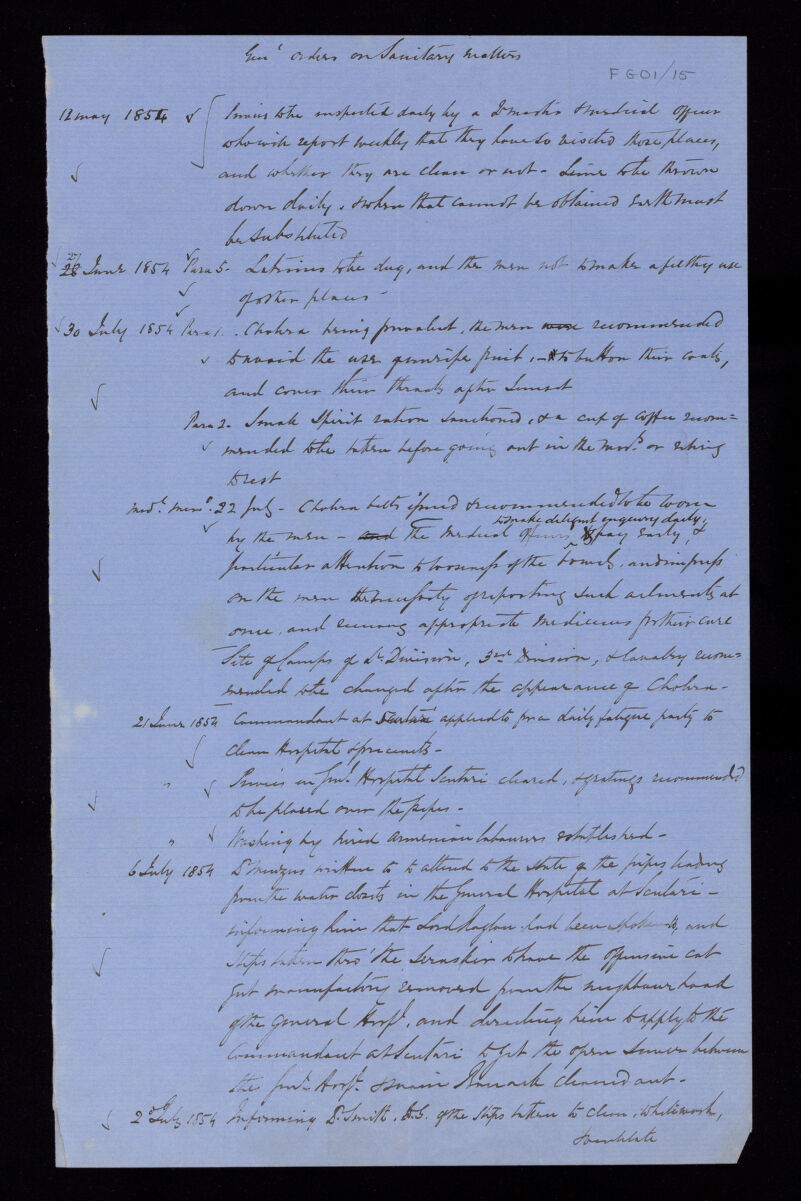 Genl orders on Sanitary matters
FG01/15
12 may 1854 Privies to be inspected daily by a Qr master & medical officer
who will report weekly that they have so visited those places,
and whether they are clean or not - Lime to be thrown
down daily, & when that cannot be obtained earth must
be substituted
27
28 June 1854 Para 5. Latrines to be dug, and the men not to make a filthy use
of other places -
30 July 1854 Para 1. Cholera being prevalent, the men were recommended
to avoid the use of unripe fruit, - & to button their coats,
and cover their throats after Sunset
Para 2. Small Spirit ration sanctioned, & a cup of Coffee recom=
mended to be taken before going out in the morng or retiring
to rest
Medl Memo. 22 July - Cholera belts issued & recommended to be worn
to make diligent enquiry daily,
by the men - and the Medical officers to pay early, &
particular attention to looseness of the bowels, and impress
on the men the necessity of reporting such ailments at
once, and using appropriate medicines for their cure
Site of Camps of Lt Division, 3rd Division, & Cavalry recom=
mended to be changed after the appearance of Cholera -
21 June 1854 Commandant at Scutari applied to for a daily fatigue party to
clean Hospital & precincts -
" Privies in Genl Hospital Scutari cleared, & gratings recommended
to be placed over the pipes -
" Washing by hired Armenian labourers established -
6 July 1854 Dr Menzies written to to attend to the state of the pipes leading
from the water closets in the General Hospital at Scutari -
informing him that Lord Raglan had been spoken to, and
steps taken thro' the Seraskier to have the offensive cat
gut manufactory removed from the neighbourhood
of the General Hospl, and directing him to apply to the
Commandant at Scutari to get the open sewer between
the Genl Hospl & main Barrack cleaned out -
2 July 1854 Informing Dr Smith, D.G. of the steps taken to clean, whitewash,
& ventilate